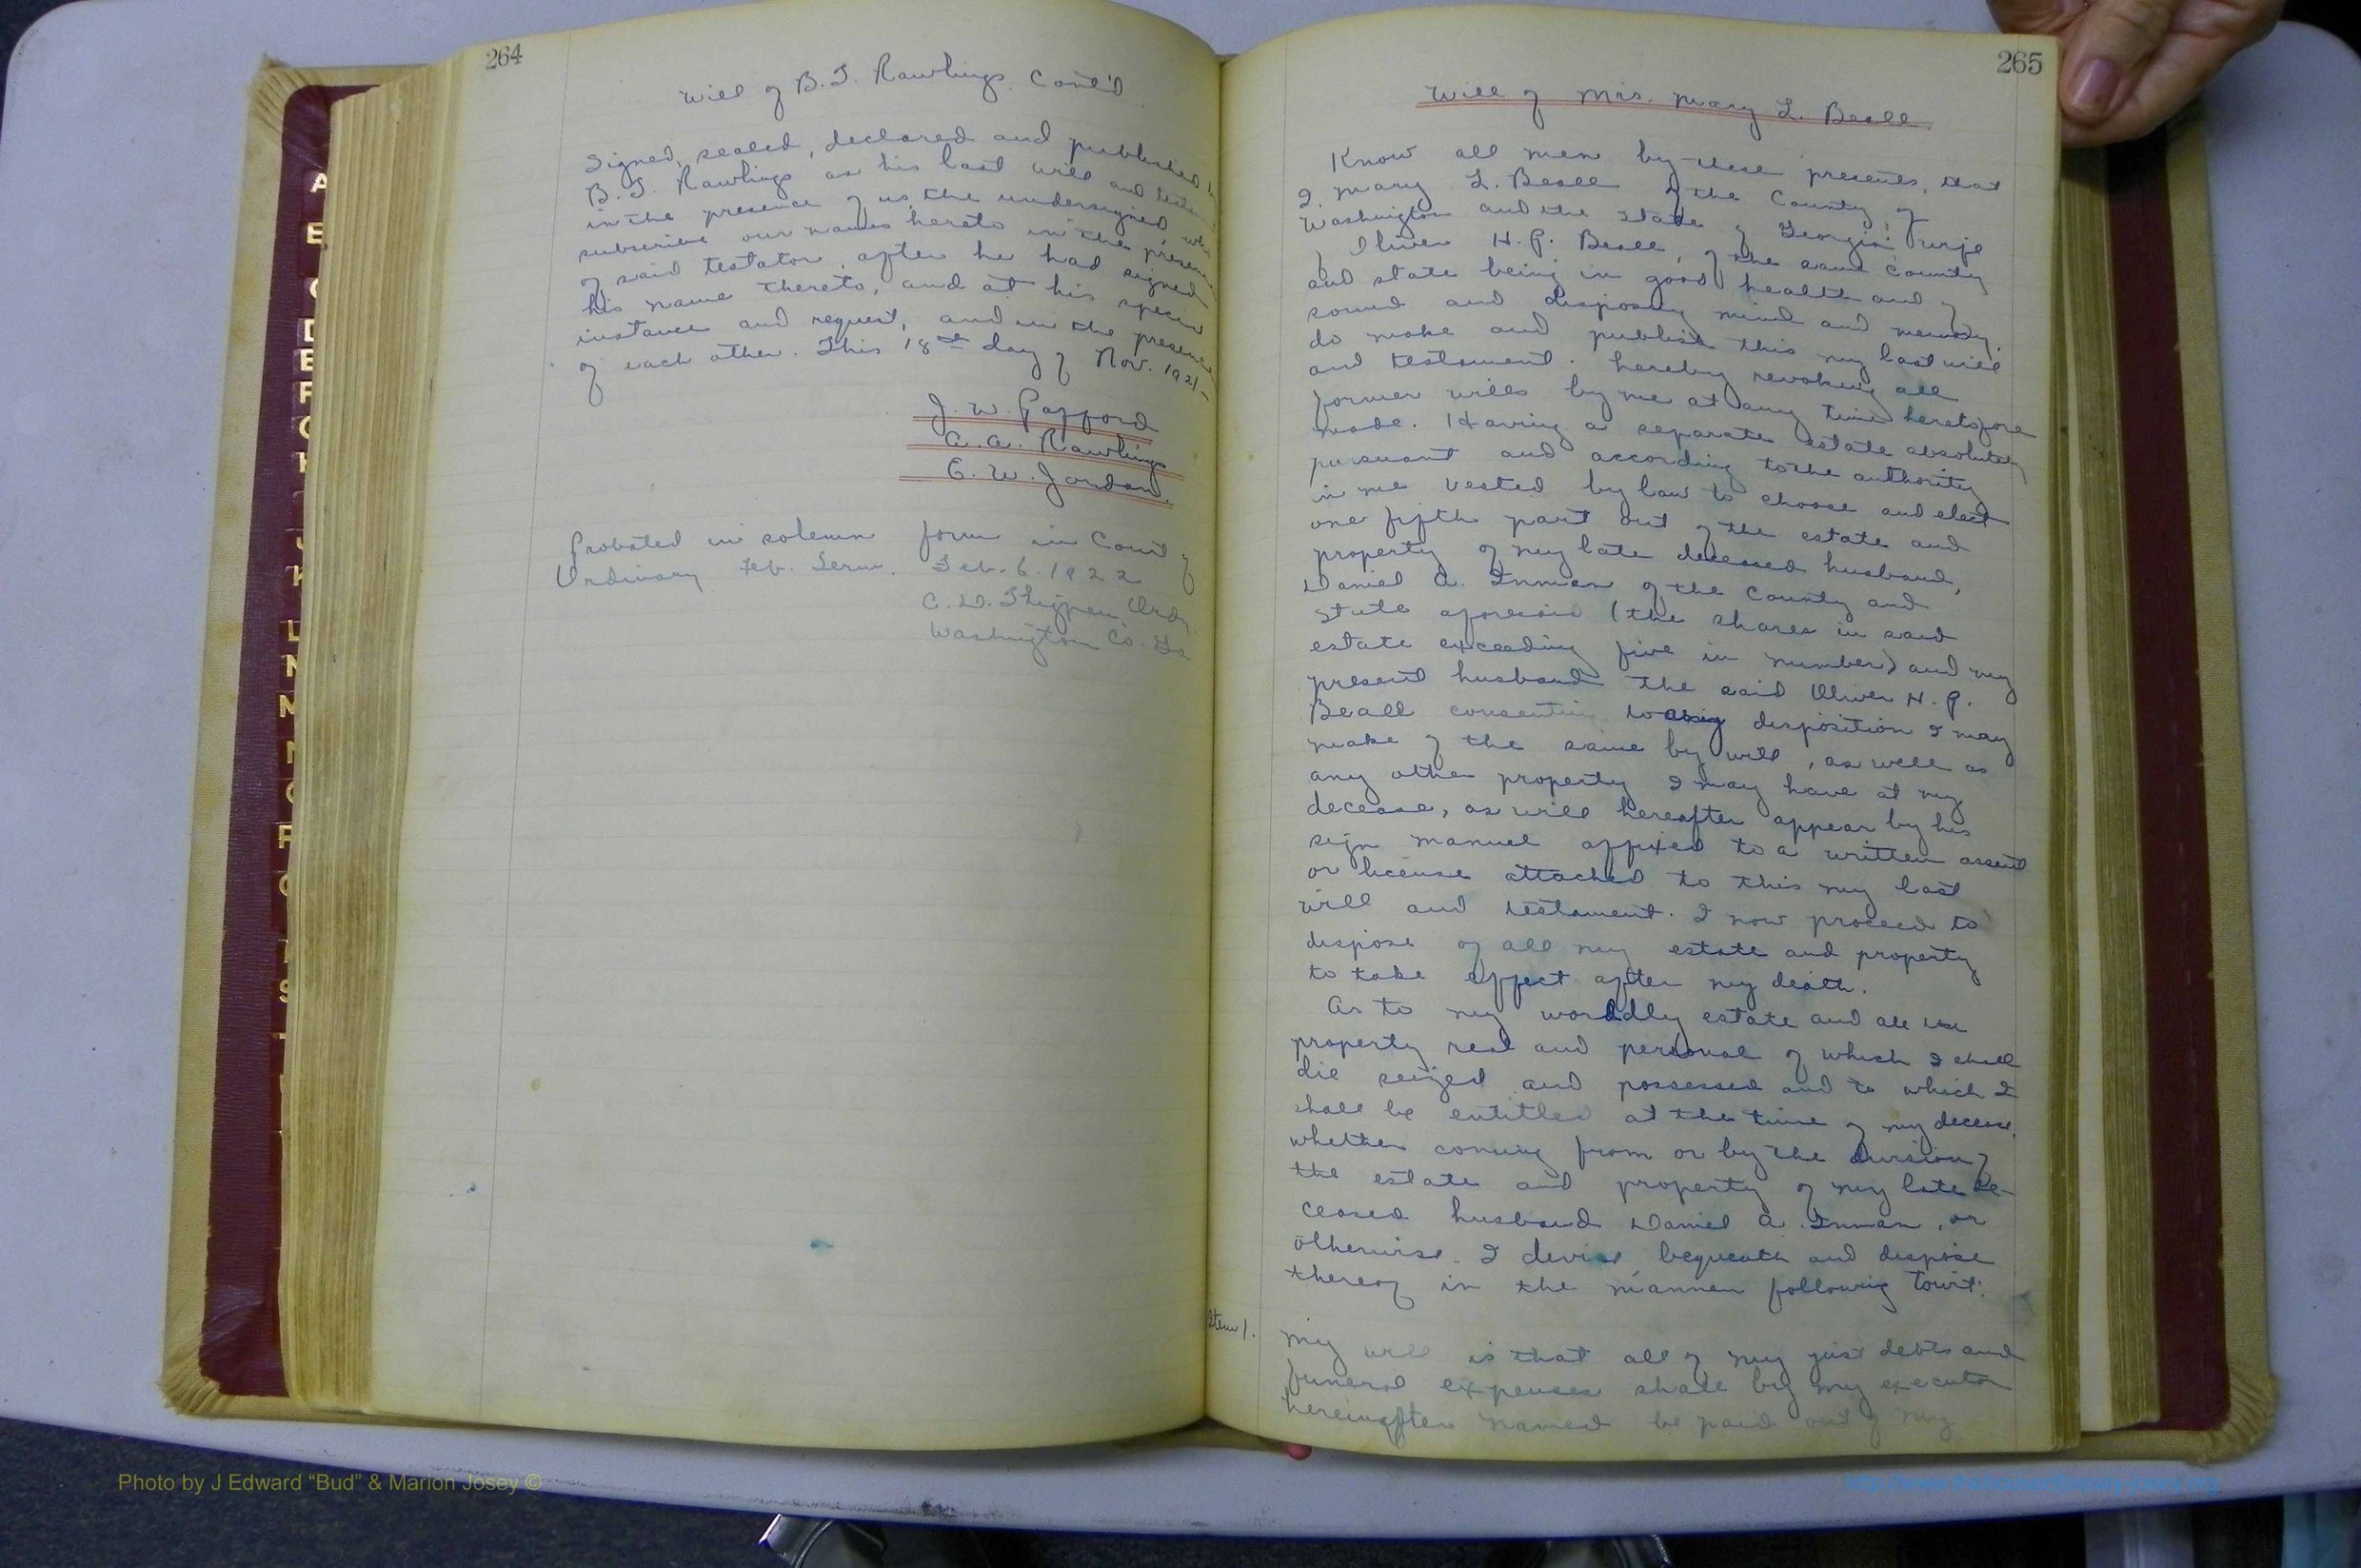 264
Will of B.T. Rawlings, Cont'd
Signed, sealed, declared and published
B.T. Rawlings as his last will and
in the presence of us, the undersigned, who
subscribe our names hereto in the presence
of said testator, after he had signed
his name thereto, and at his special
instance and request, and in the presence
of each other. This 18th day of Nov. 1921
J. W. Gafford
A. A. Rawlings
E. W. Jordan
Probated in solemn form in Court of
Ordinary Feb. Term. Feb. 6. 1922
C. D. Thigpen Ordy.
Washington Co. Ga
265
Will of Mrs. Mary L. Beall
Know all men by these presents, that
I, Mary L. Beall of the County of
Washington and the state of Georgia, wife
of Oliver H. P. Beall, of the same County
and state being in good health and of
sound and disposing mind and memory,
do make and publish this my last will
and testament. hereby revoking all
former wills by me at any time heretofore
made. Having a separate estate absolutely
pursuant and according to the authority
in me vested by law to choose and elect
one fifth part out of the estate and
property of my late deceased husband,
Daniel A. Inman of the County and
State aforesaid (the shares in said
estate exceeding five in number) and my
present husband the said Oliver H. P.
Beall consenting to any disposition I may
make of the same by will, as well as
any other property I may have at my
decease, as will hereafter appear by his
sign manuel affixed to a written assent
or license attached to this my last
will and testament. I now proceed to
dispose of all my estate and property
to take effect after my death.
As to my worldly estate and all the
property real and personal of which I shall
die seized and possessed and to which I
shall be entitled at the time of my decease,
whether coming from or by the division of
the estate and property of my late de-
ceased husband Daniel A. Inman, or
otherwise. I devise, bequeath and dispose
thereof in the manner following towit:
Item 1.
My will is that all of my just debts and
funeral expenses shall by my executor
hereinafter named be paid out of my
A
E
Photo by J Edward “Bud” & Marion Josey ©